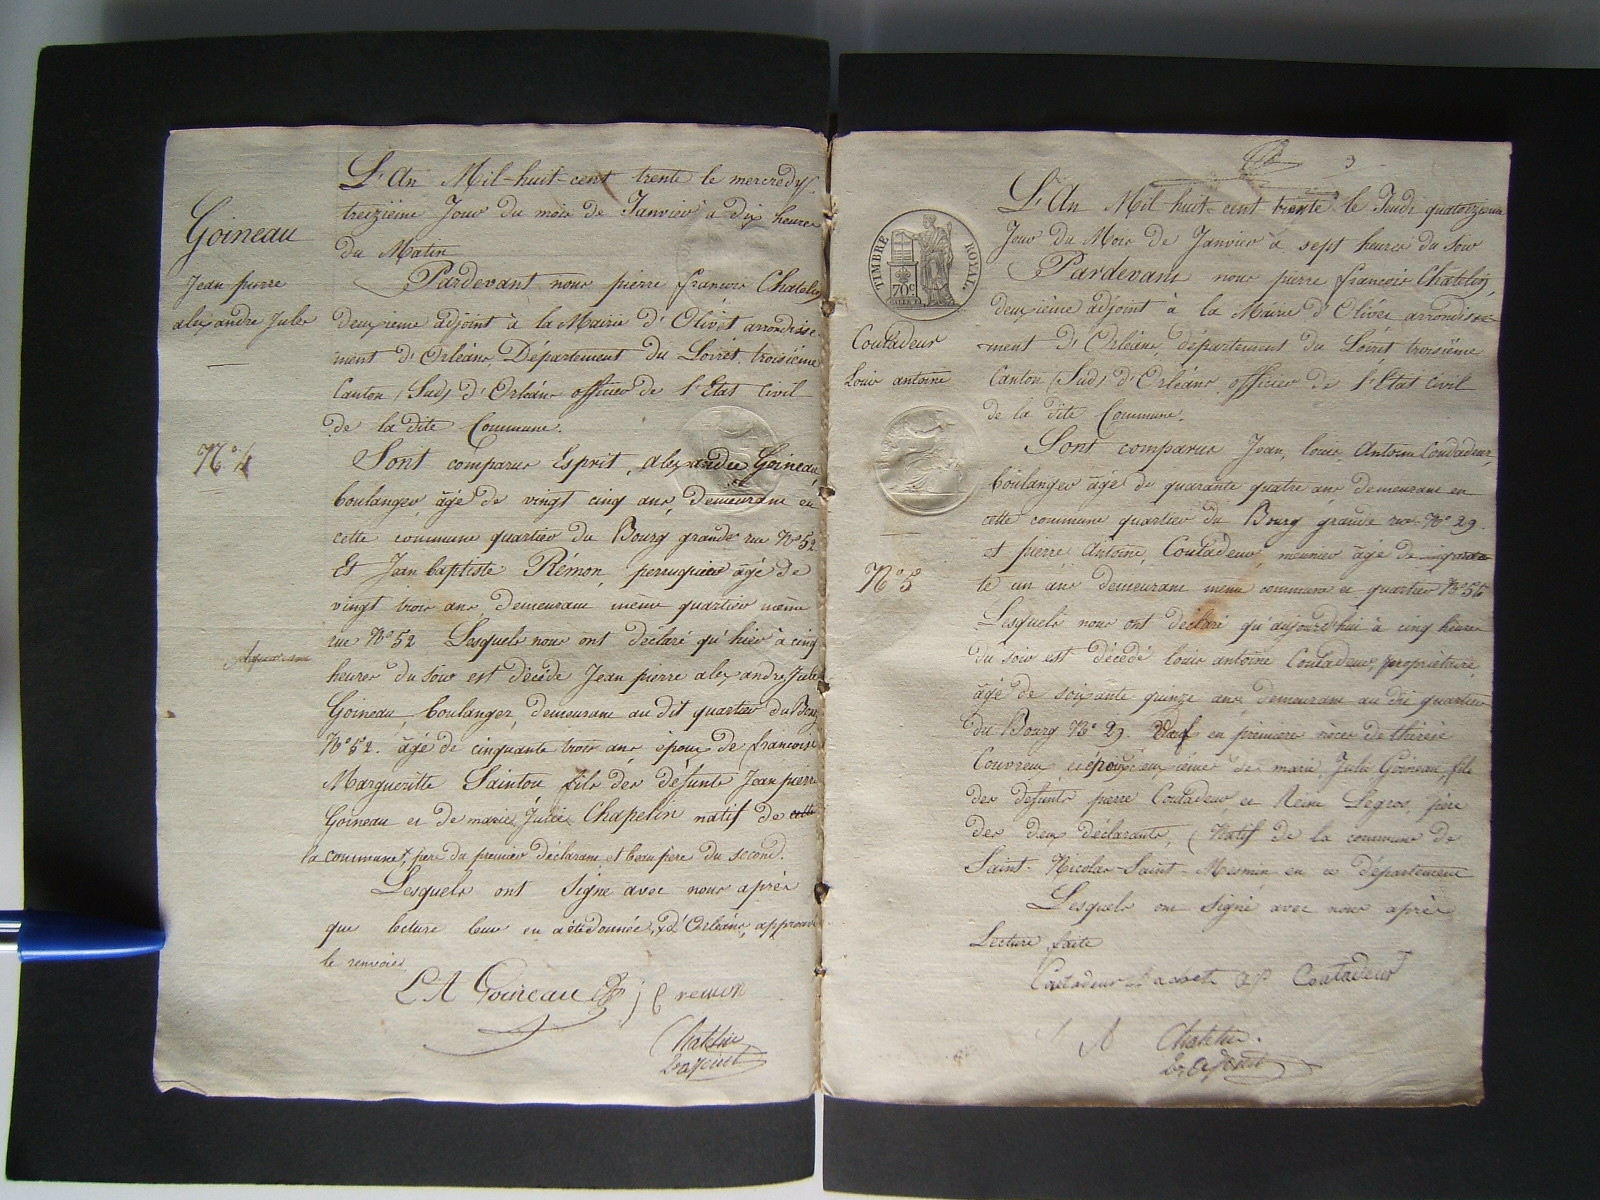 Goineau
Jean pierre
alexandre Jules
N° 4
L'An Mil-huit-cent trente le mercredy
treizième Jour du mois de Janvier à dix heures
du Matin
Pardevant nous pierre françois Chatelin
deuxième adjoint à la Mairie d'Olivet arrondisse-
ment d'Orléans, Département du Loiret troisième
Canton (Sud) d'Orléans officier de l'Etat Civil
de la dite Commune.
Sont comparus Esprit, alexandre Goineau,
boulanger, âgé de vingt cinq ans, demeurant en
cette commune quartier du Bourg grande rue N° 52
Et Jean baptiste Rémon, perruquier âgé de
vingt trois ans, demeurant même quartier même
rue N° 52 Lesquels nous ont déclaré qu'hier à cinq
heures du soir est décédé Jean pierre alexandre Jules
Goineau, boulanger, demeurant au dit quartier du Bourg
N° 52. âgé de cinquante trois ans époux de francoise
Margueritte Saintou fils des défunts Jean pierre
Goineau et de marie, Julie, Chapelin natif de cette
la commune, père du premier déclarant et beau père du second.
Lesquels ont Signé avec nous après
que lecture leur en a été donnée, d'Orléans, approuvé
le renvoie
E A Goineau j B remon
Chatelin
2e adjoint
3
TIMBRE ROYAL.
70c
Coutadeur
Louis antoine
N° 5
L'An Mil huit-cent trente le Jeudi quatorzième
Jour du Mois de Janvier à sept heures du soir
Pardevant nous pierre françois Chatelin,
deuxième adjoint à la Mairie d'Olivet arrondisse-
ment d'Orléans, département du Loiret troisième
Canton (Sud) d'Orléans officier de l'Etat Civil
de la dite Commune.
Sont comparus Jean, louis, Antoine Coutadeur,
boulanger âgé de quarante quatre ans demeurant en
cette commune quartier du Bourg grande rue N° 29.
et pierre Antoine, Coutadeur, meunier âgé de quaran
te un ans demeurant même commune et quartier N° 54
Lesquels nous ont déclaré qu'aujourd'hui à cinq heures
du soir est décédé louis antoine Coutadeur, propriétaire,
âgé de soixante-quinze ans, demeurant au dit quartier
du Bourg N° 29. Veuf en première nôces de thérèse
Couvreux, et époux en deuxième de marie, Julie Goineau, fils
des défunts pierre Coutadeur et Reine Legros, père
des deux déclarants, (Natif de la commune de
Saint-Nicolas-Saint-Mesmin, en ce département
Lesquels ont Signé avec nous après
Lecture faite
Coutadeur ap Coutadeur
Chatelin.
2e adjoint